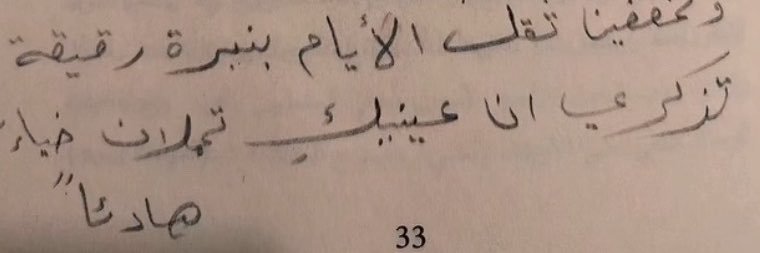 وتخففينا ثقل الأيام بنبرة رقيقة
تذكري ان عينيكِ تحملان ضياء
هادئاً
33